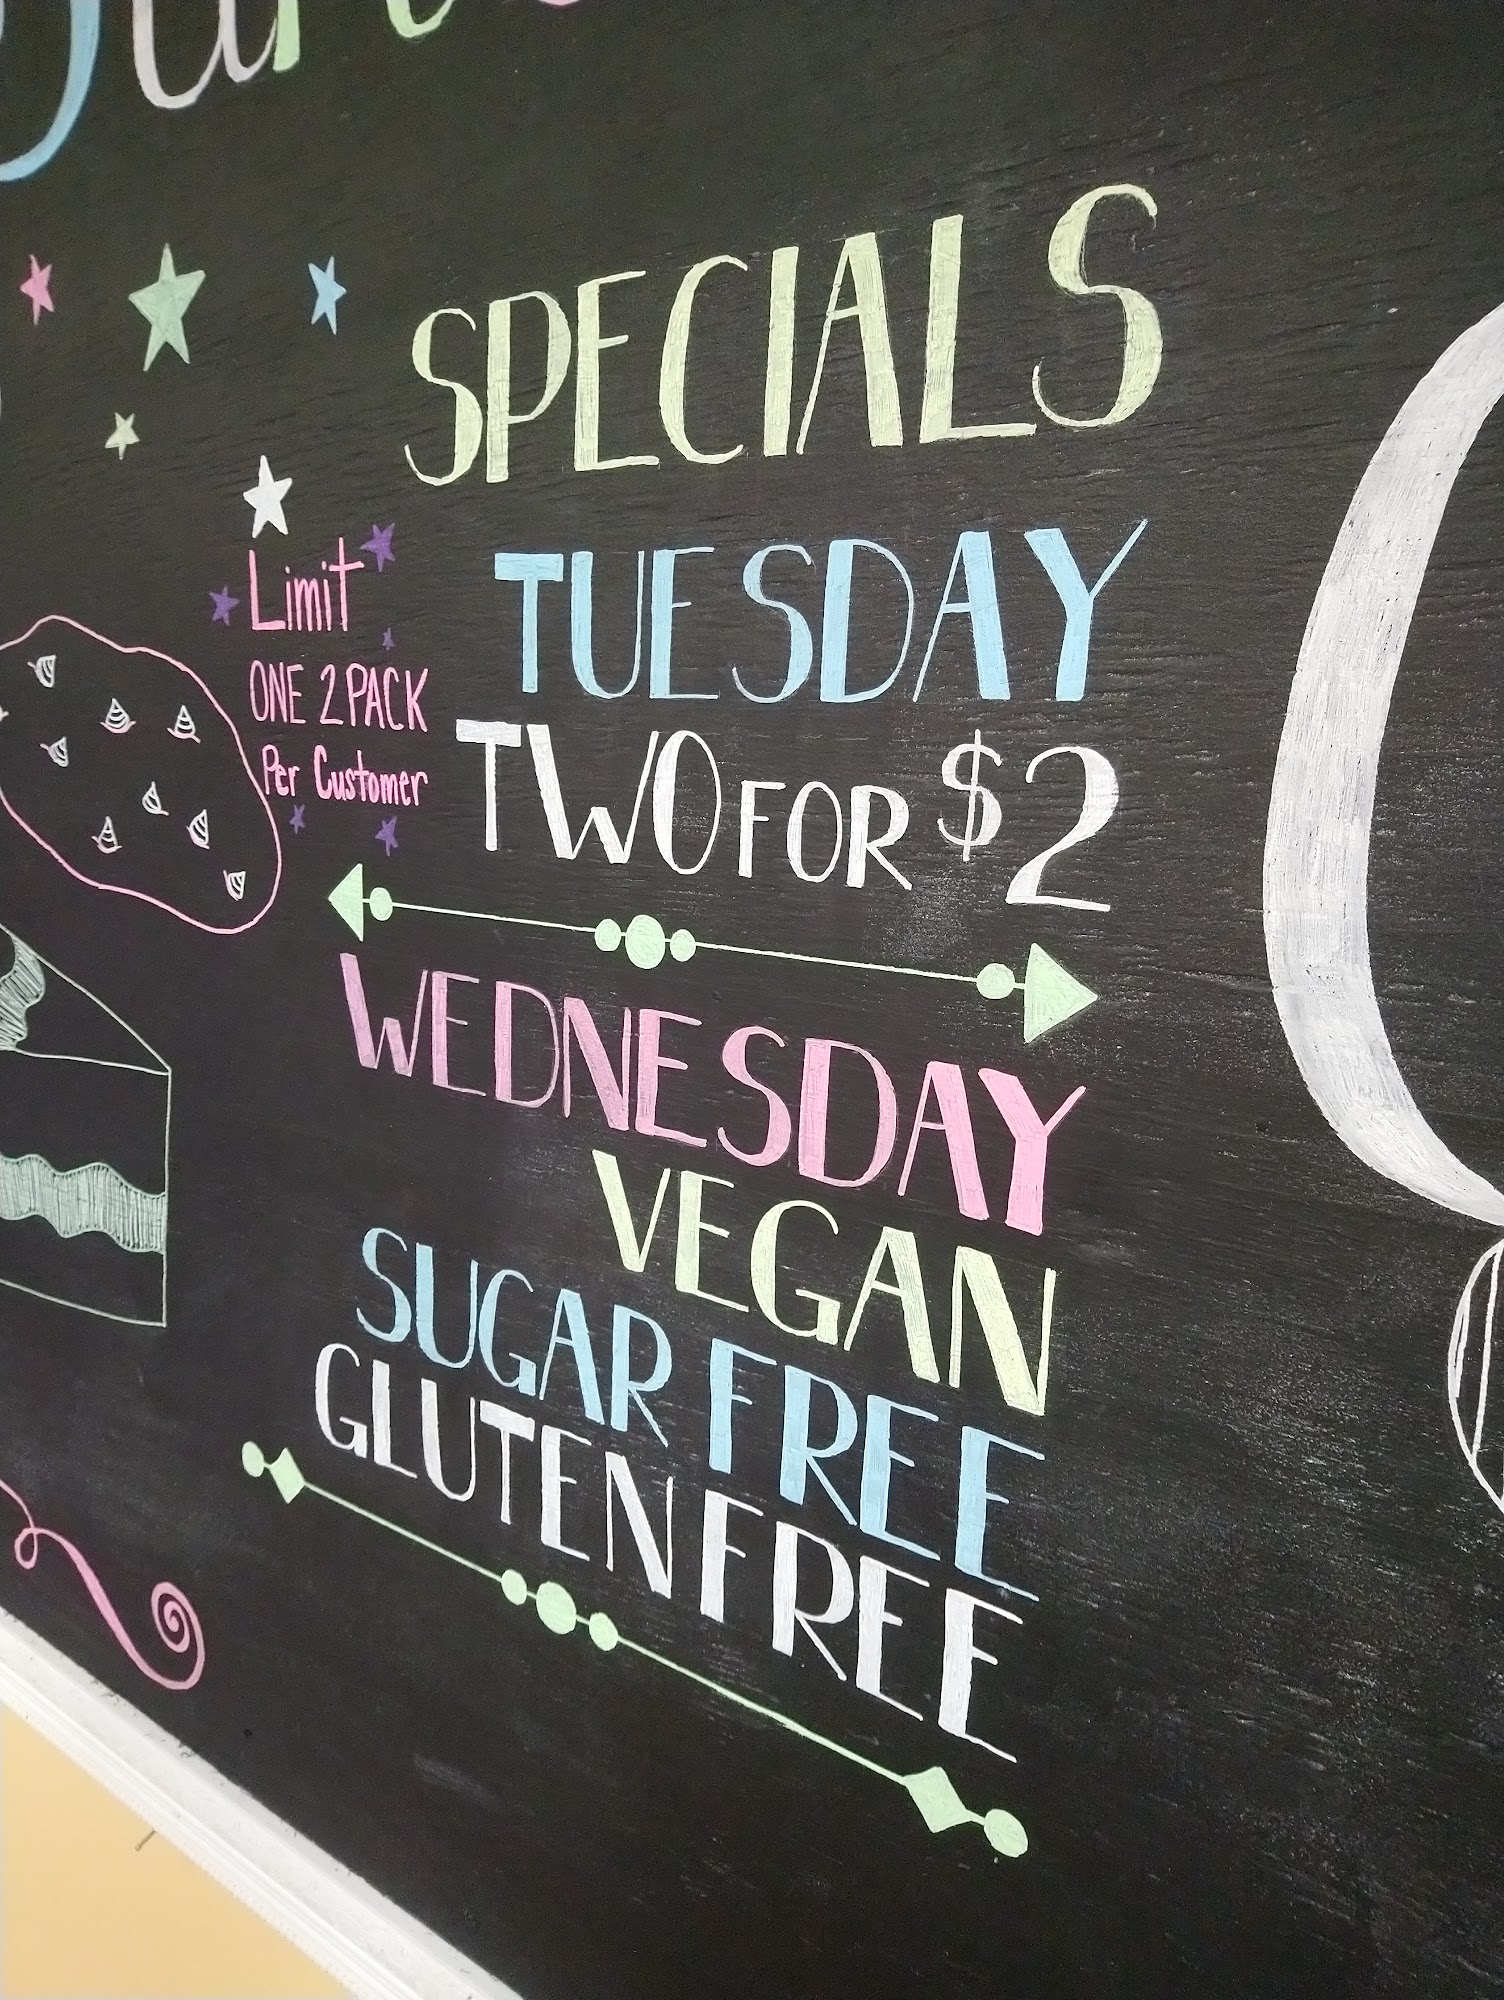 SPECIALS
TUESDAY
TWO FOR $2
Limit
ONE 2 PACK
Per Customer
WEDNESDAY
VEGAN
SUGAR FREE
GLUTEN FREE